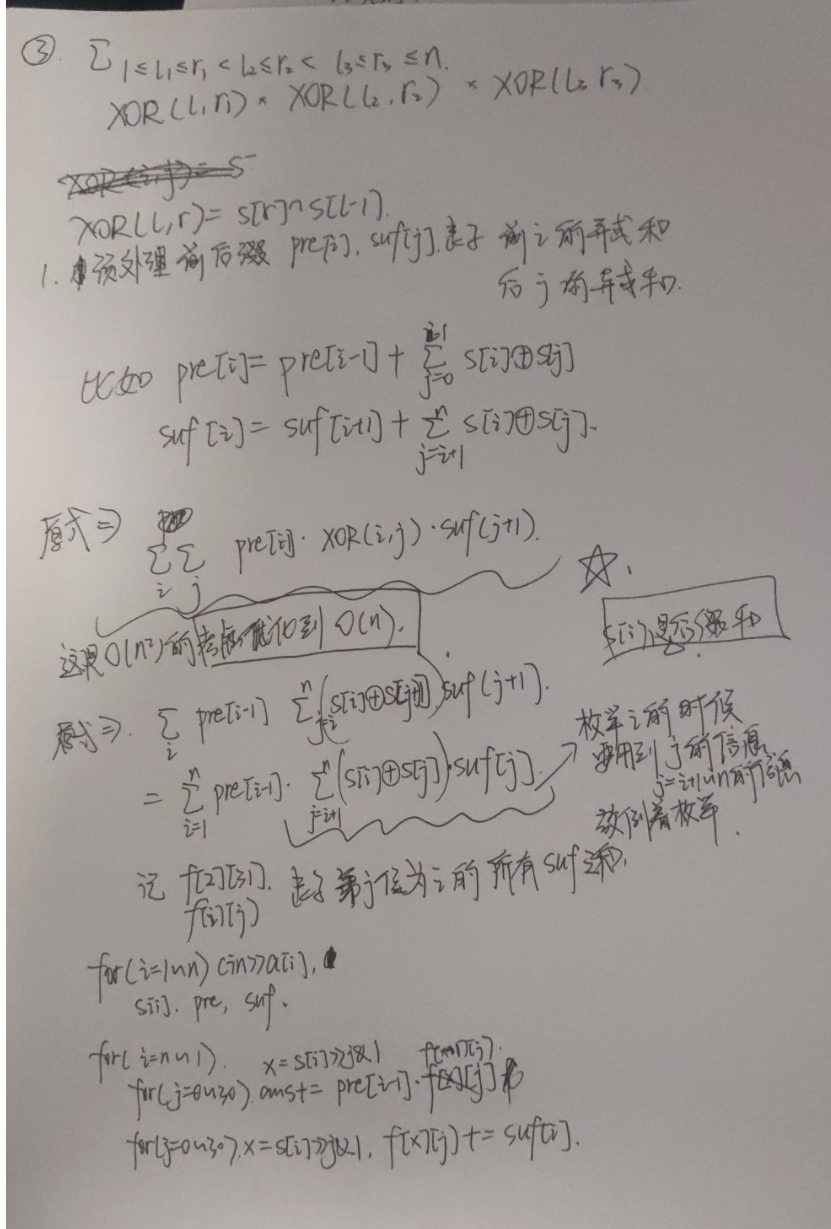 ③. Σ 1≤l₁≤r₁<l₂≤r₂< l₃≤r₃ ≤n.
XOR(l₁r₁) × XOR(l₂,r₂) × XOR(l₃ r₃)
XOR(i,j)= s
XOR(l,r)= s[r]^s[l-1].
1. 预处理前后缀 pre[i], suf[j].表示 前i的异或和
后j的异或和.
比如 pre[i]= pre[i-1] + Σ_{j=0}^{i-1} s[i]⊕s[j]
suf[i]= suf[i+1] + Σ_{j=i+1}^{n} s[i]⊕s[j].
原式⇒ Σ_i Σ_j pre[i]· XOR(i,j)·suf(j+1).
☆.
这是O(n²)的考虑优化到 O(n).
s[i]是后缀和
原式⇒. Σ_i pre[i-1] Σ_{j=i}^{n}(s[i]⊕s[j+1])suf(j+1).
= Σ_{i=1}^{n} pre[i-1]· Σ_{j=i+1}^{n}(s[i]⊕s[j])·suf[j].
枚举i的时候
要用到j的信息,
j=i+1~n的信息
故倒着枚举.
记 f[2][31]. 表示第j位为i的所有suf之和.
f[i][j]
for(i=1~n) cin>>a[i],
s[i]. pre, suf.
for(i=n~1). x=s[i]>>j&1 f[x^1][j].
for(j=0~30). ans+= pre[i-1]·f[x][j]
for(j=0~30). x=s[i]>>j&1, f[x][j] += suf[i].